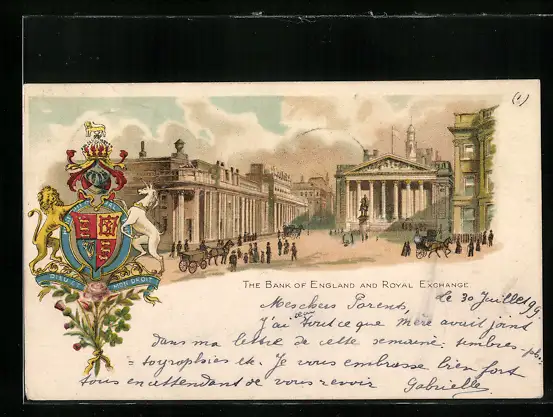 (1)
DIEU ET MON DROIT
THE BANK OF ENGLAND AND ROYAL EXCHANGE
Mes chers Parents, Le 30 Juillet 99.
J'ai eu tout ce que mère avait joint
dans ma lettre de cette semaine, timbres, pho-
= tographies etc. Je vous embrasse bien fort
tous en attendant de vous revoir Gabrielle